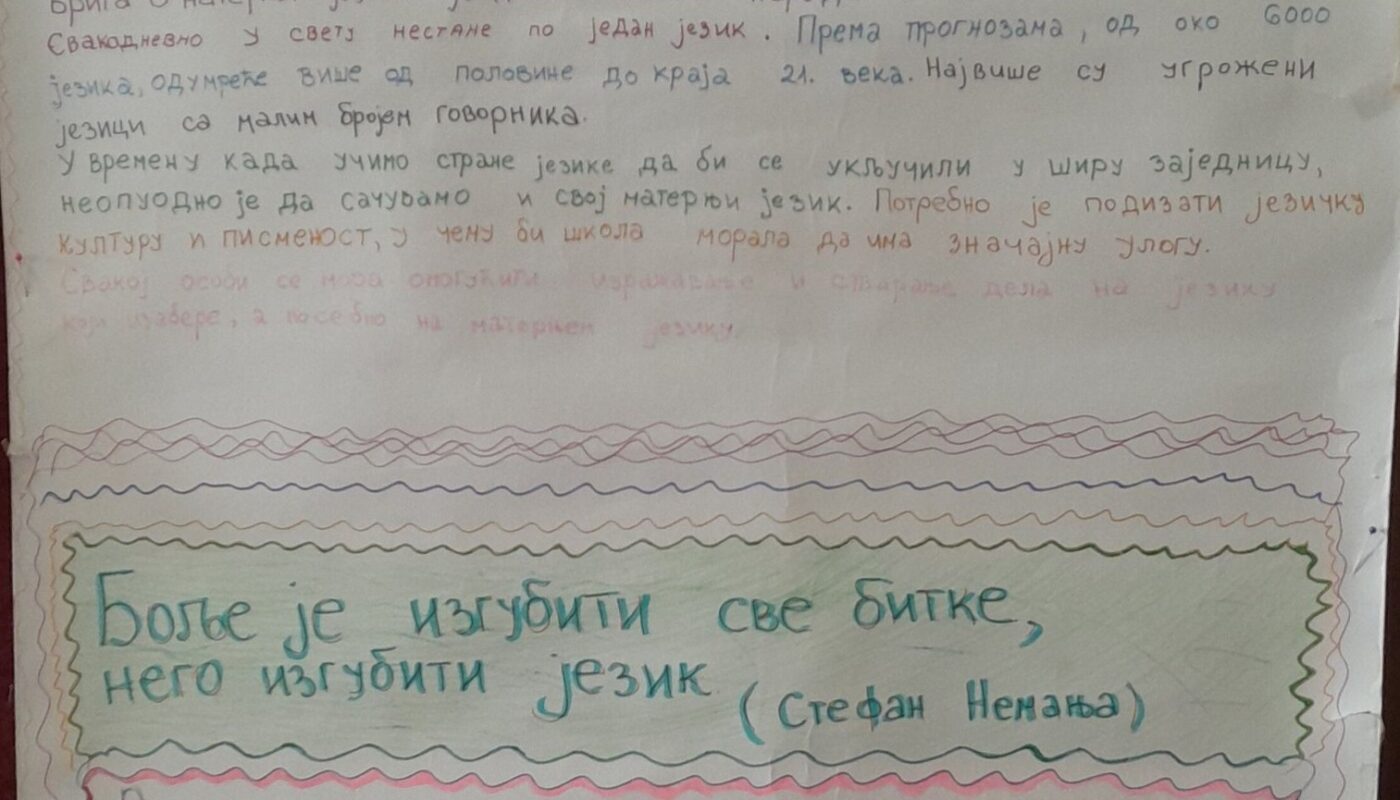 Брига о
Свакодневно у свету нестане по један језик. Према прогнозама, од око 6000
језика, одумреће више од половине до краја 21. века. Највише су угрожени
језици са малим бројем говорника.
У времену када учимо стране језике да би се укључили у ширу заједницу,
неопуодно је да сачувамо и свој матерњи језик. Потребно је подизати језичку
културу и писменост, у чему би школа морала да има значајну улогу.
Свакој особи се мора омогућити изражавање и стварање дела на језику
који изабере, а посебно на матерњем језику.
Боље је изгубити све битке,
него изгубити језик
(Стефан Немања)